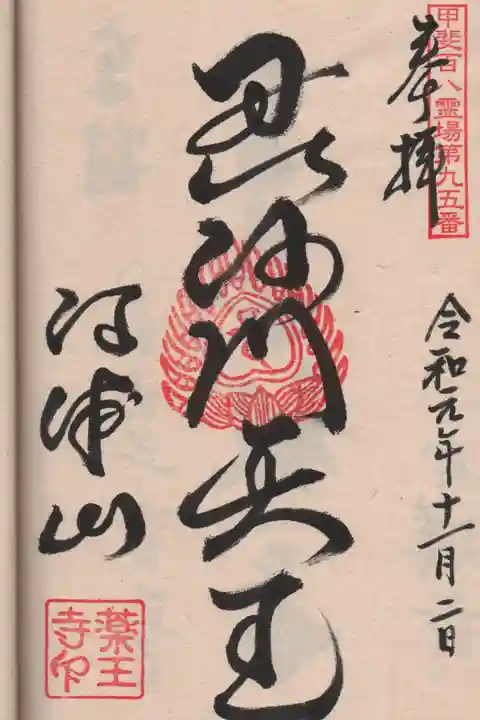 甲斐百八霊場第九五番
奉拝
令和元年十一月二日
毘沙門天王
河浦山
薬王
寺印